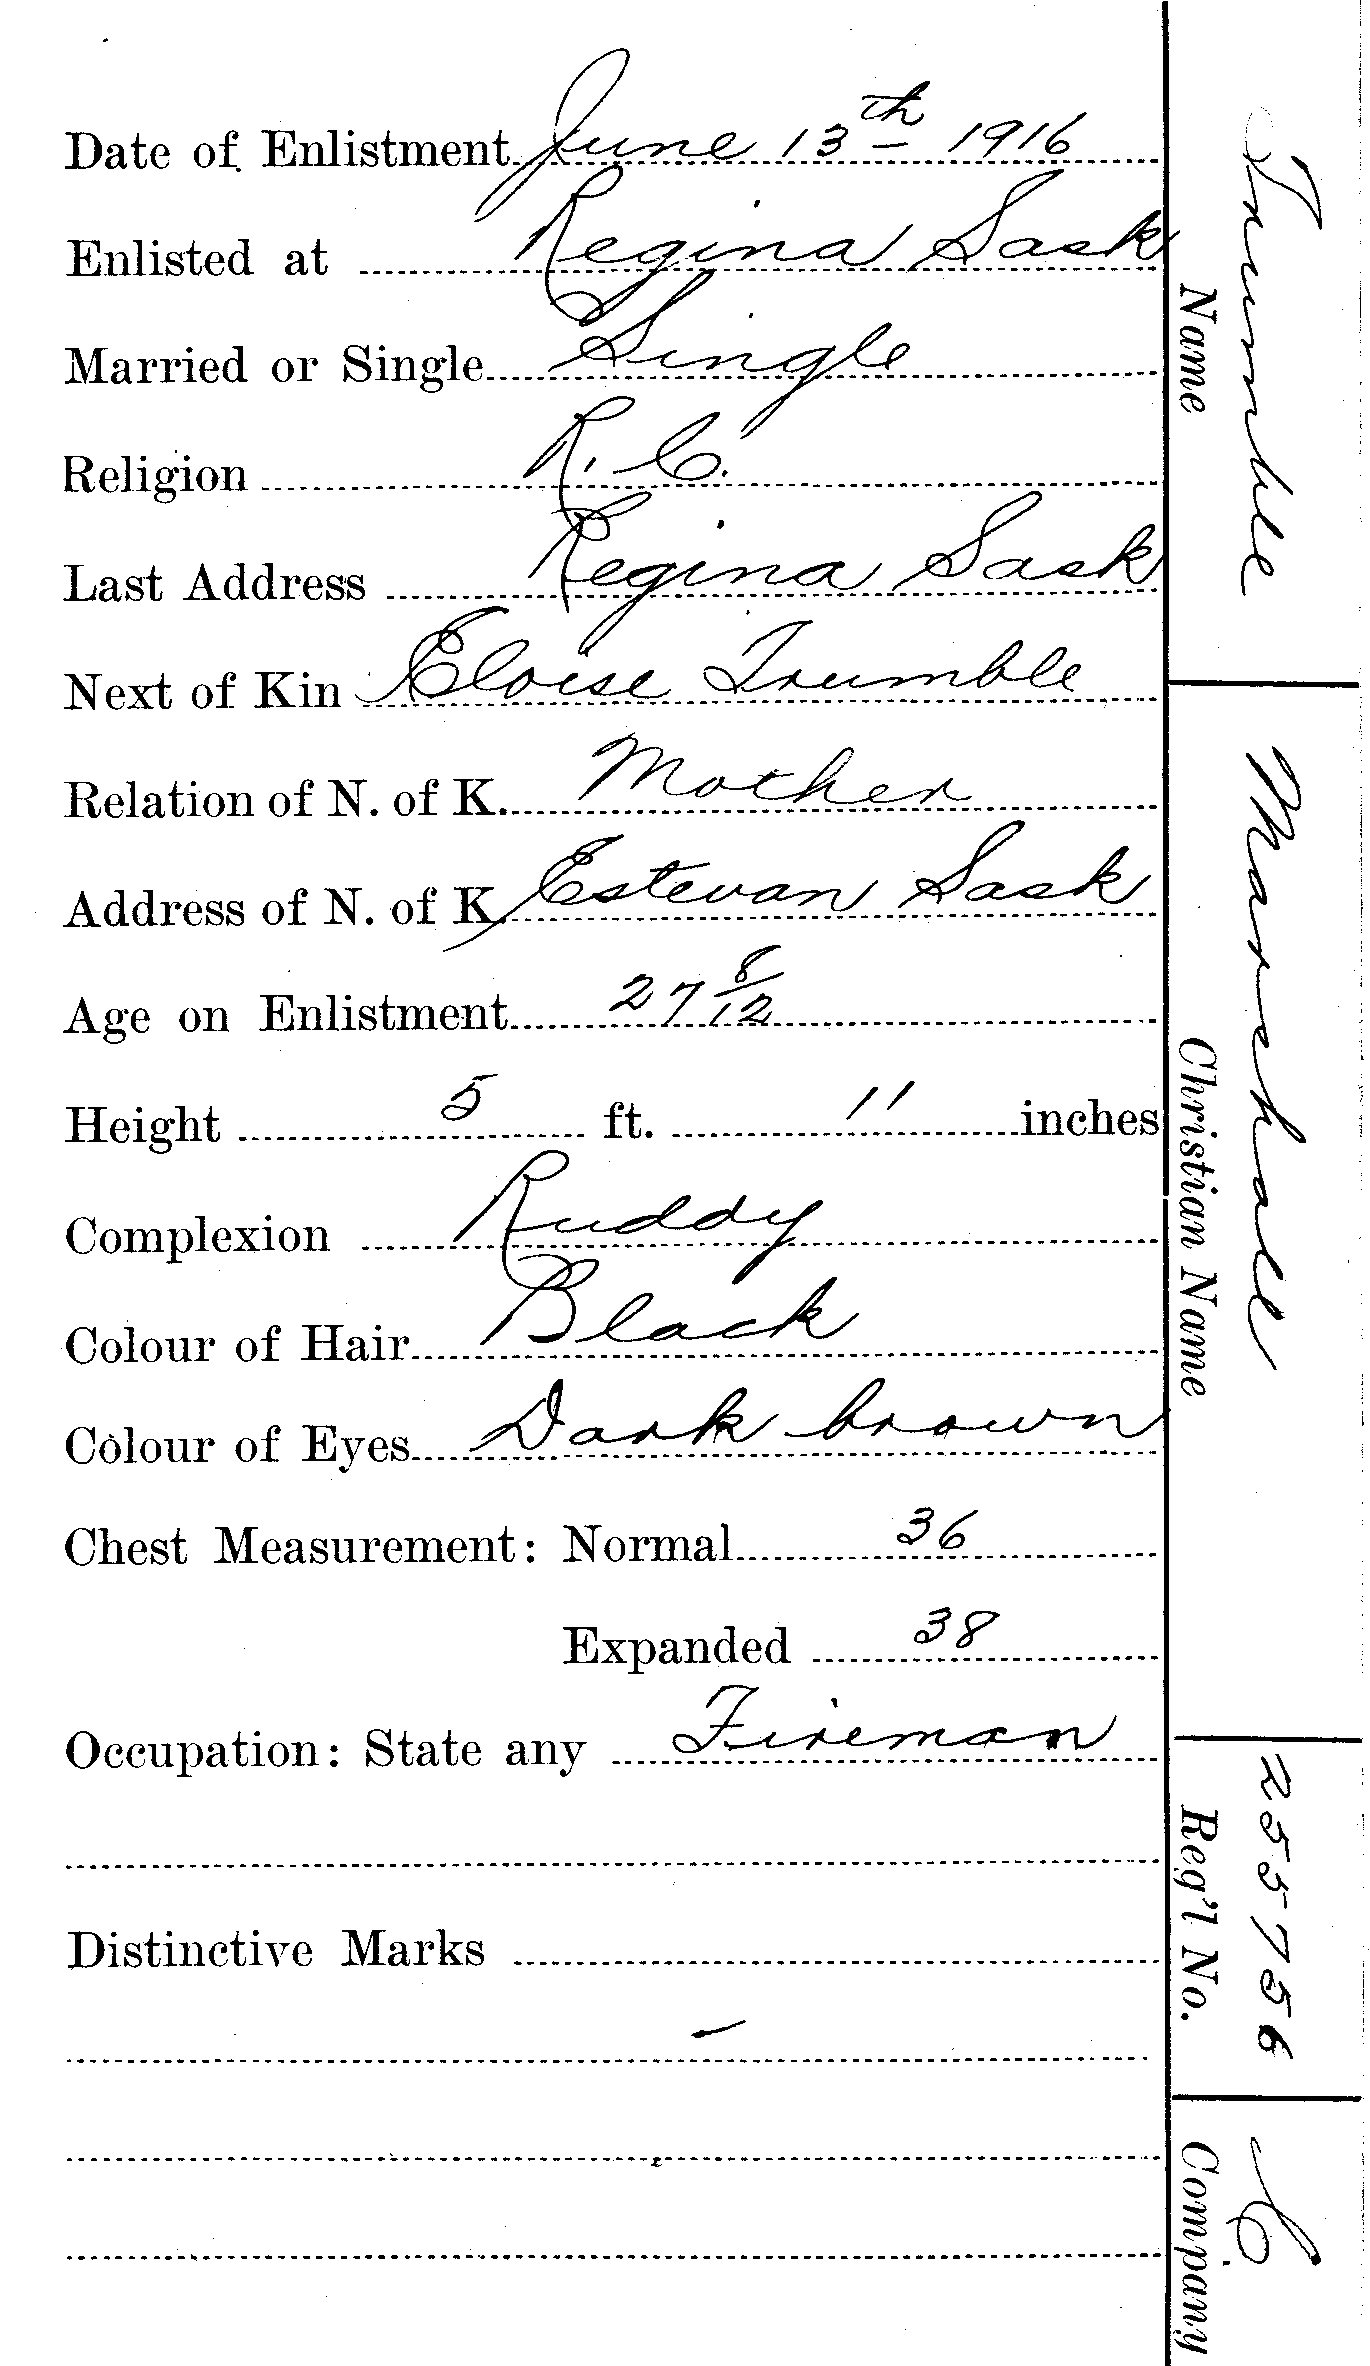 Date of Enlistment June 13th 1916
Enlisted at Regina Sask
Married or Single Single
Religion R. C.
Last Address Regina Sask
Next of Kin Eloise Trumble
Relation of N. of K. Mother
Address of N. of K. Estevan Sask
Age on Enlistment 27 8/12
Height 5 ft. 11 inches
Complexion Ruddy
Colour of Hair Black
Colour of Eyes Dark brown
Chest Measurement: Normal 36
Expanded 38
Occupation: State any Fireman
Distinctive Marks
–
Trumble
Name
Marshall
Christian Name
255756
Reg'l No.
C
Company